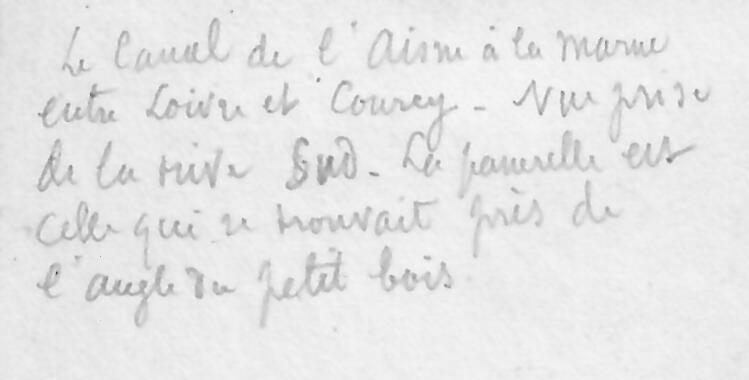 Le Canal de l'Aisne à la Marne
entre Loivre et Courcy - Vue prise
de la rive Sud - La passerelle est
celle qui se trouvait près de
l'angle du petit bois.